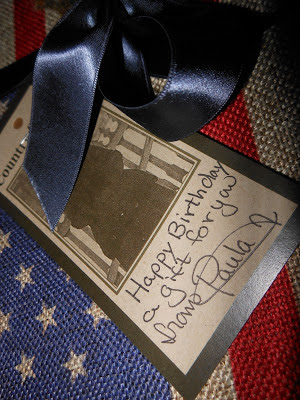 Coun
Happy Birthday
a gift for you
from Paula